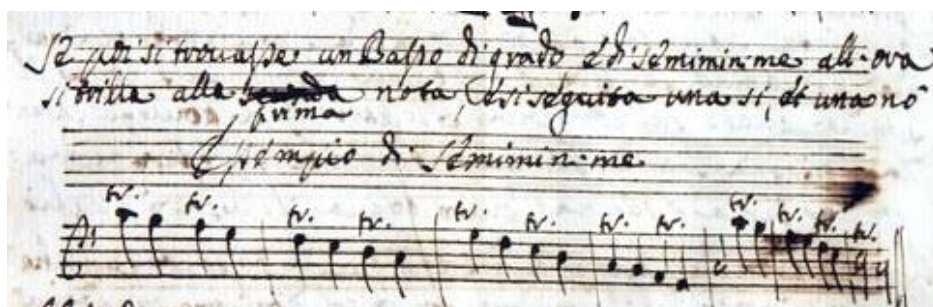 Se poi si trovasse un Basso di grado é di semiminime all: ora
si trilla alla seconda nota, é si seguita una si, et una nò
prima
Essempio di Semiminime
tr. tr. tr. tr. tr. tr. tr. tr. tr. tr. tr. tr.